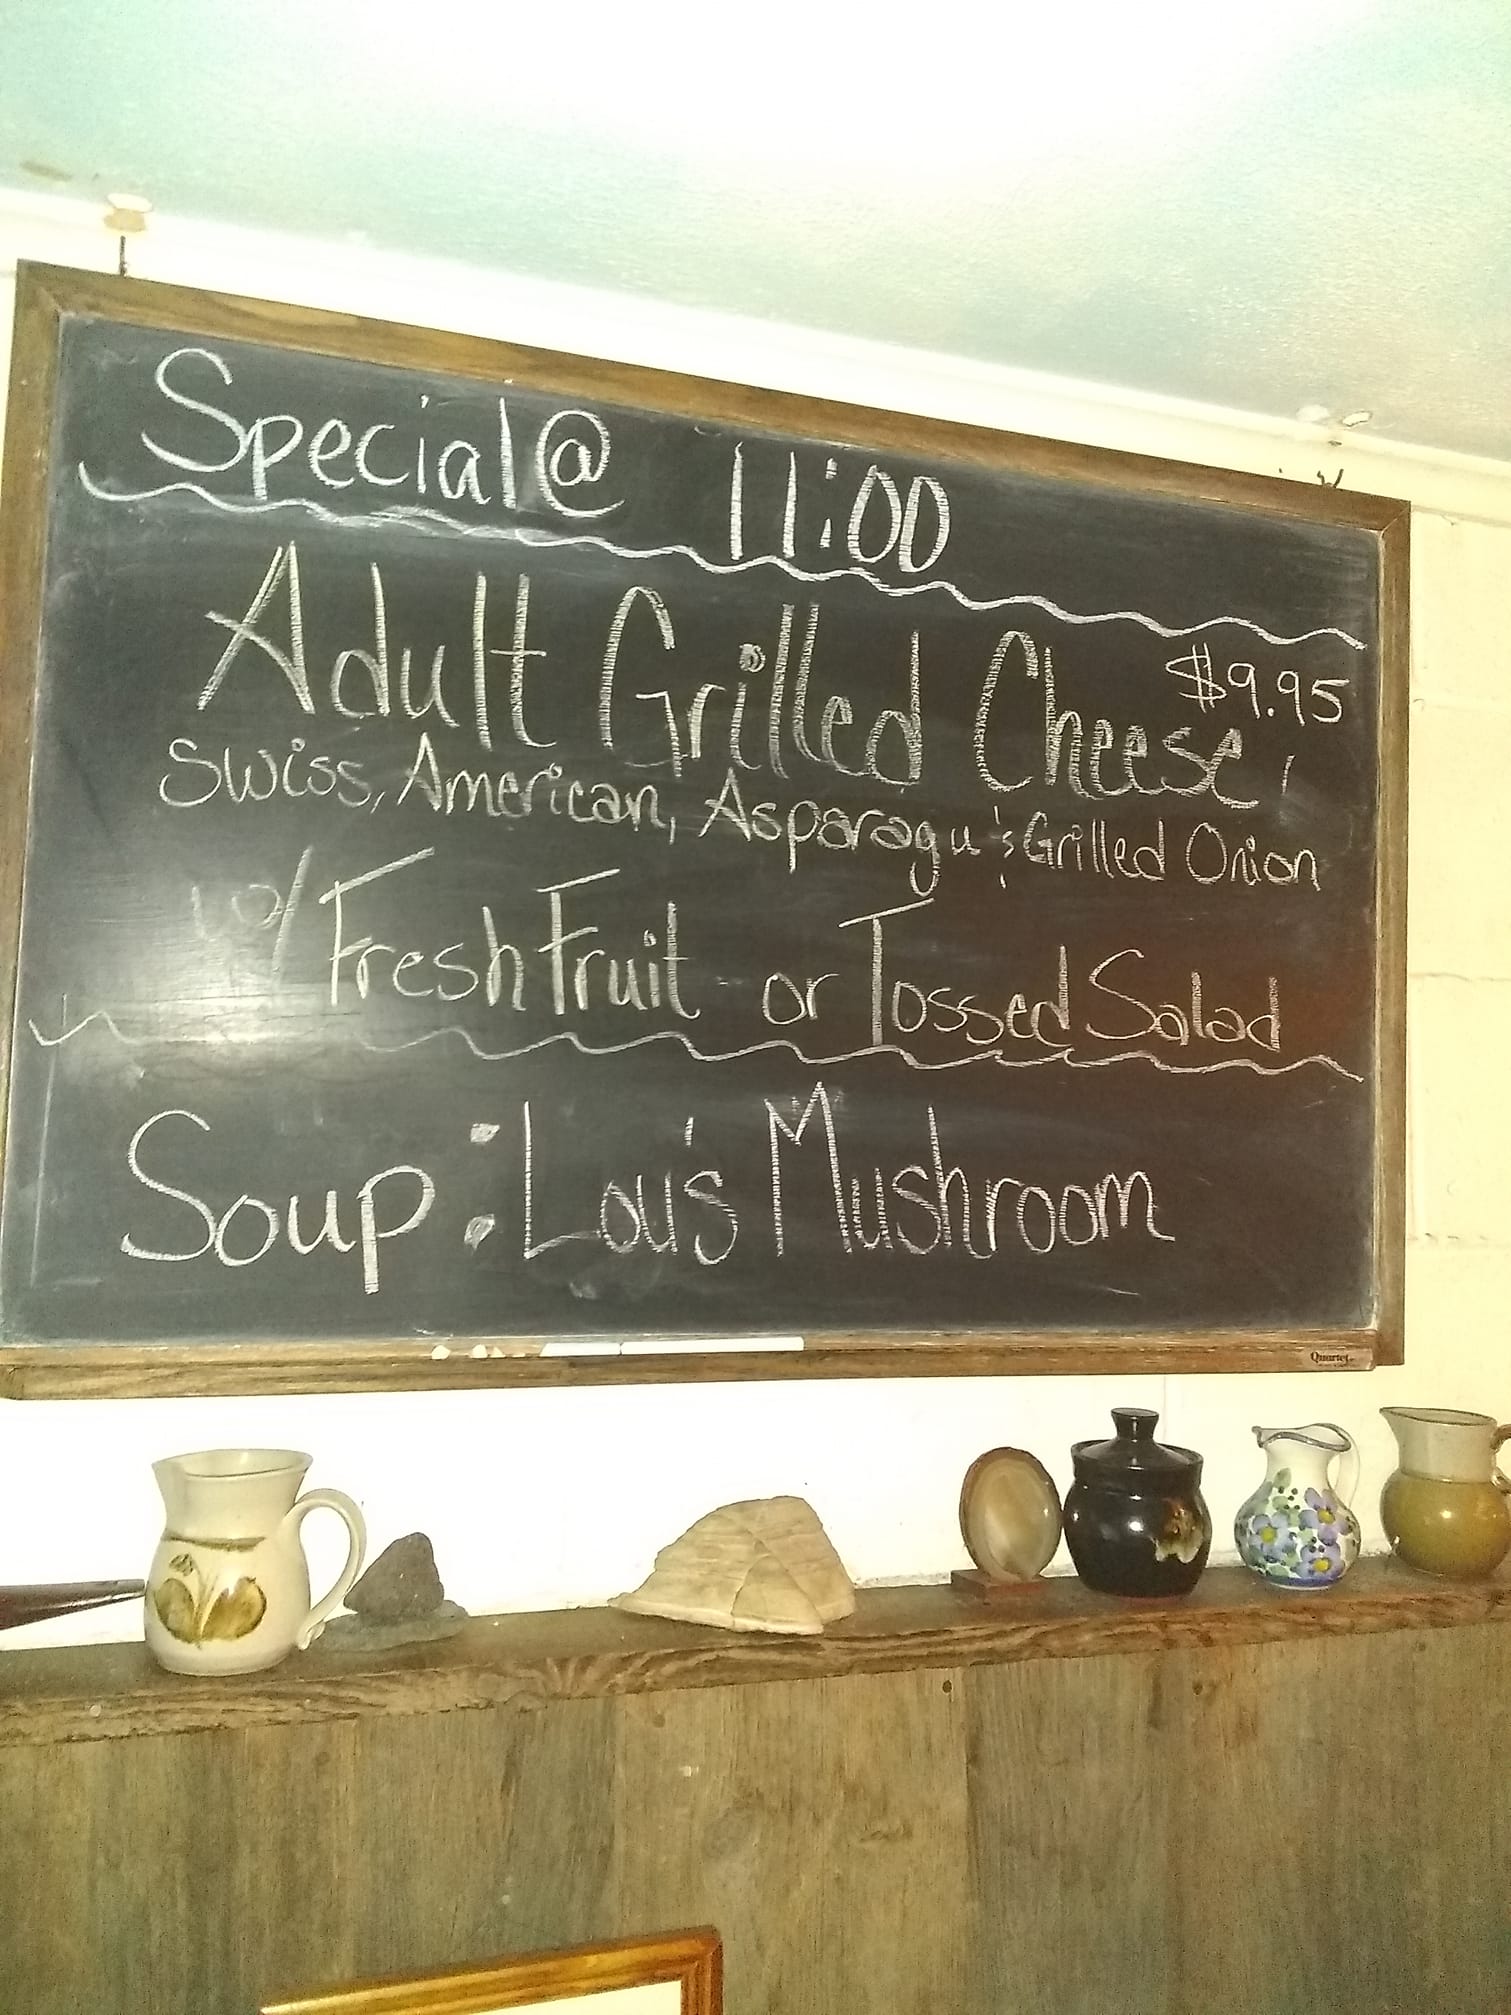 Special @ 11:00
Adult Grilled Cheese; $9.95
Swiss, American, Asparagu & Grilled Onion
w/ Fresh Fruit or Tossed Salad
Soup: Lou's Mushroom
Quartet